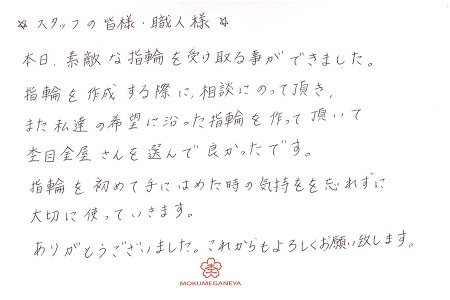 ☆ スタッフの皆様・職人様 ☆
本日、素敵な指輪を受け取る事ができました。
指輪を作成する際に、相談にのって頂き、
また私達の希望に沿った指輪を作って頂いて
杢目金屋さんを選んで良かったです。
指輪を初めて手にはめた時の気持ちをを忘れずに
大切に使っていきます。
ありがとうございました。これからもよろしくお願い致します。
MOKUMEGANEYA